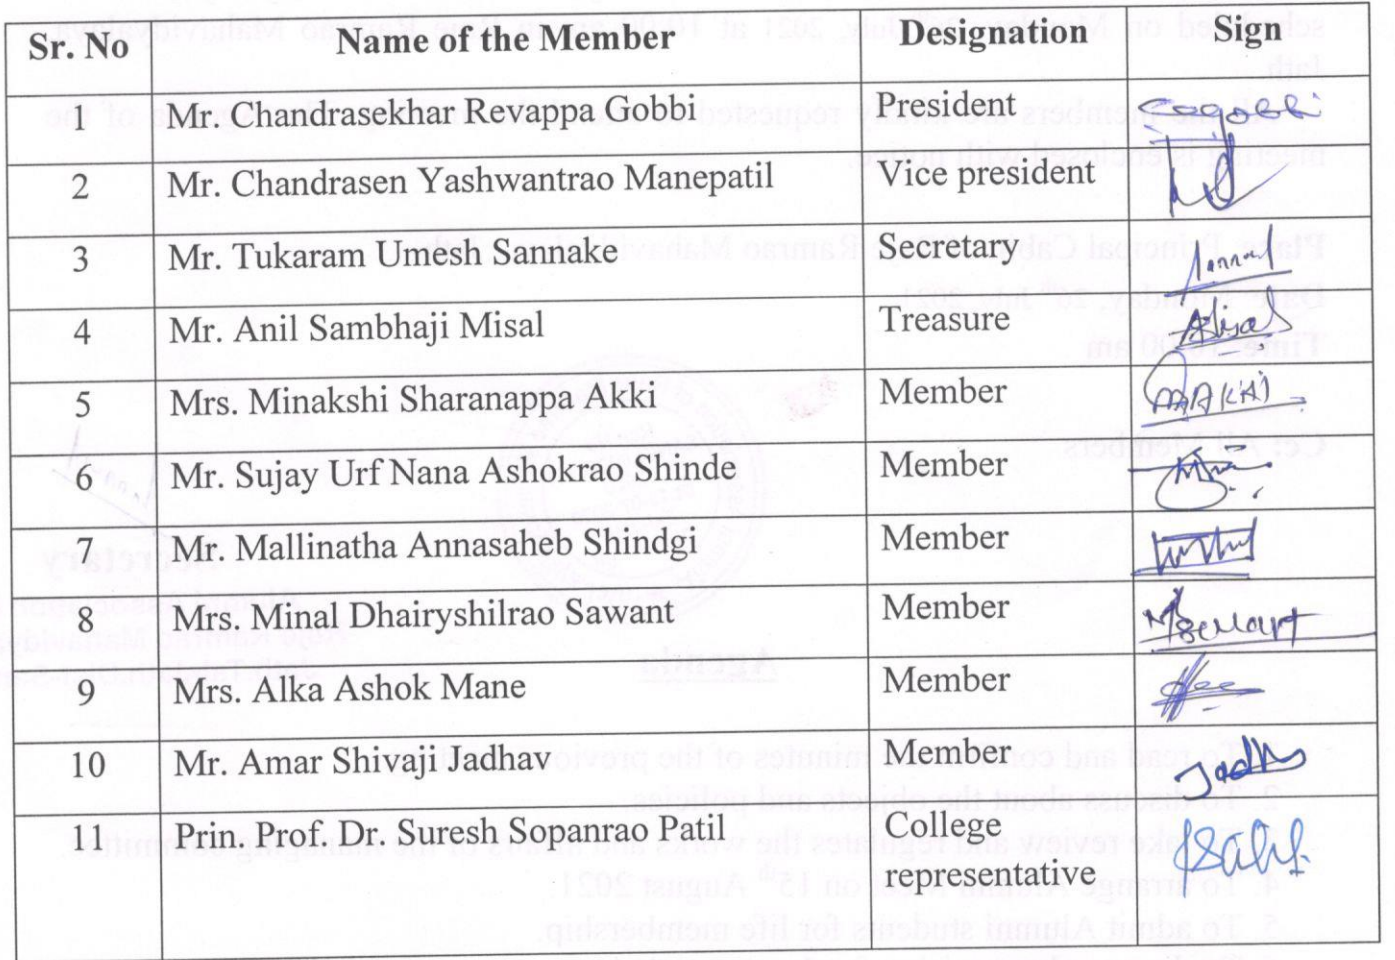 Sr. No Name of the Member Designation Sign
1 Mr. Chandrasekhar Revappa Gobbi President
2 Mr. Chandrasen Yashwantrao Manepatil Vice president
3 Mr. Tukaram Umesh Sannake Secretary
4 Mr. Anil Sambhaji Misal Treasure
5 Mrs. Minakshi Sharanappa Akki Member
6 Mr. Sujay Urf Nana Ashokrao Shinde Member
7 Mr. Mallinatha Annasaheb Shindgi Member
8 Mrs. Minal Dhairyshilrao Sawant Member
9 Mrs. Alka Ashok Mane Member
10 Mr. Amar Shivaji Jadhav Member
11 Prin. Prof. Dr. Suresh Sopanrao Patil College
representative